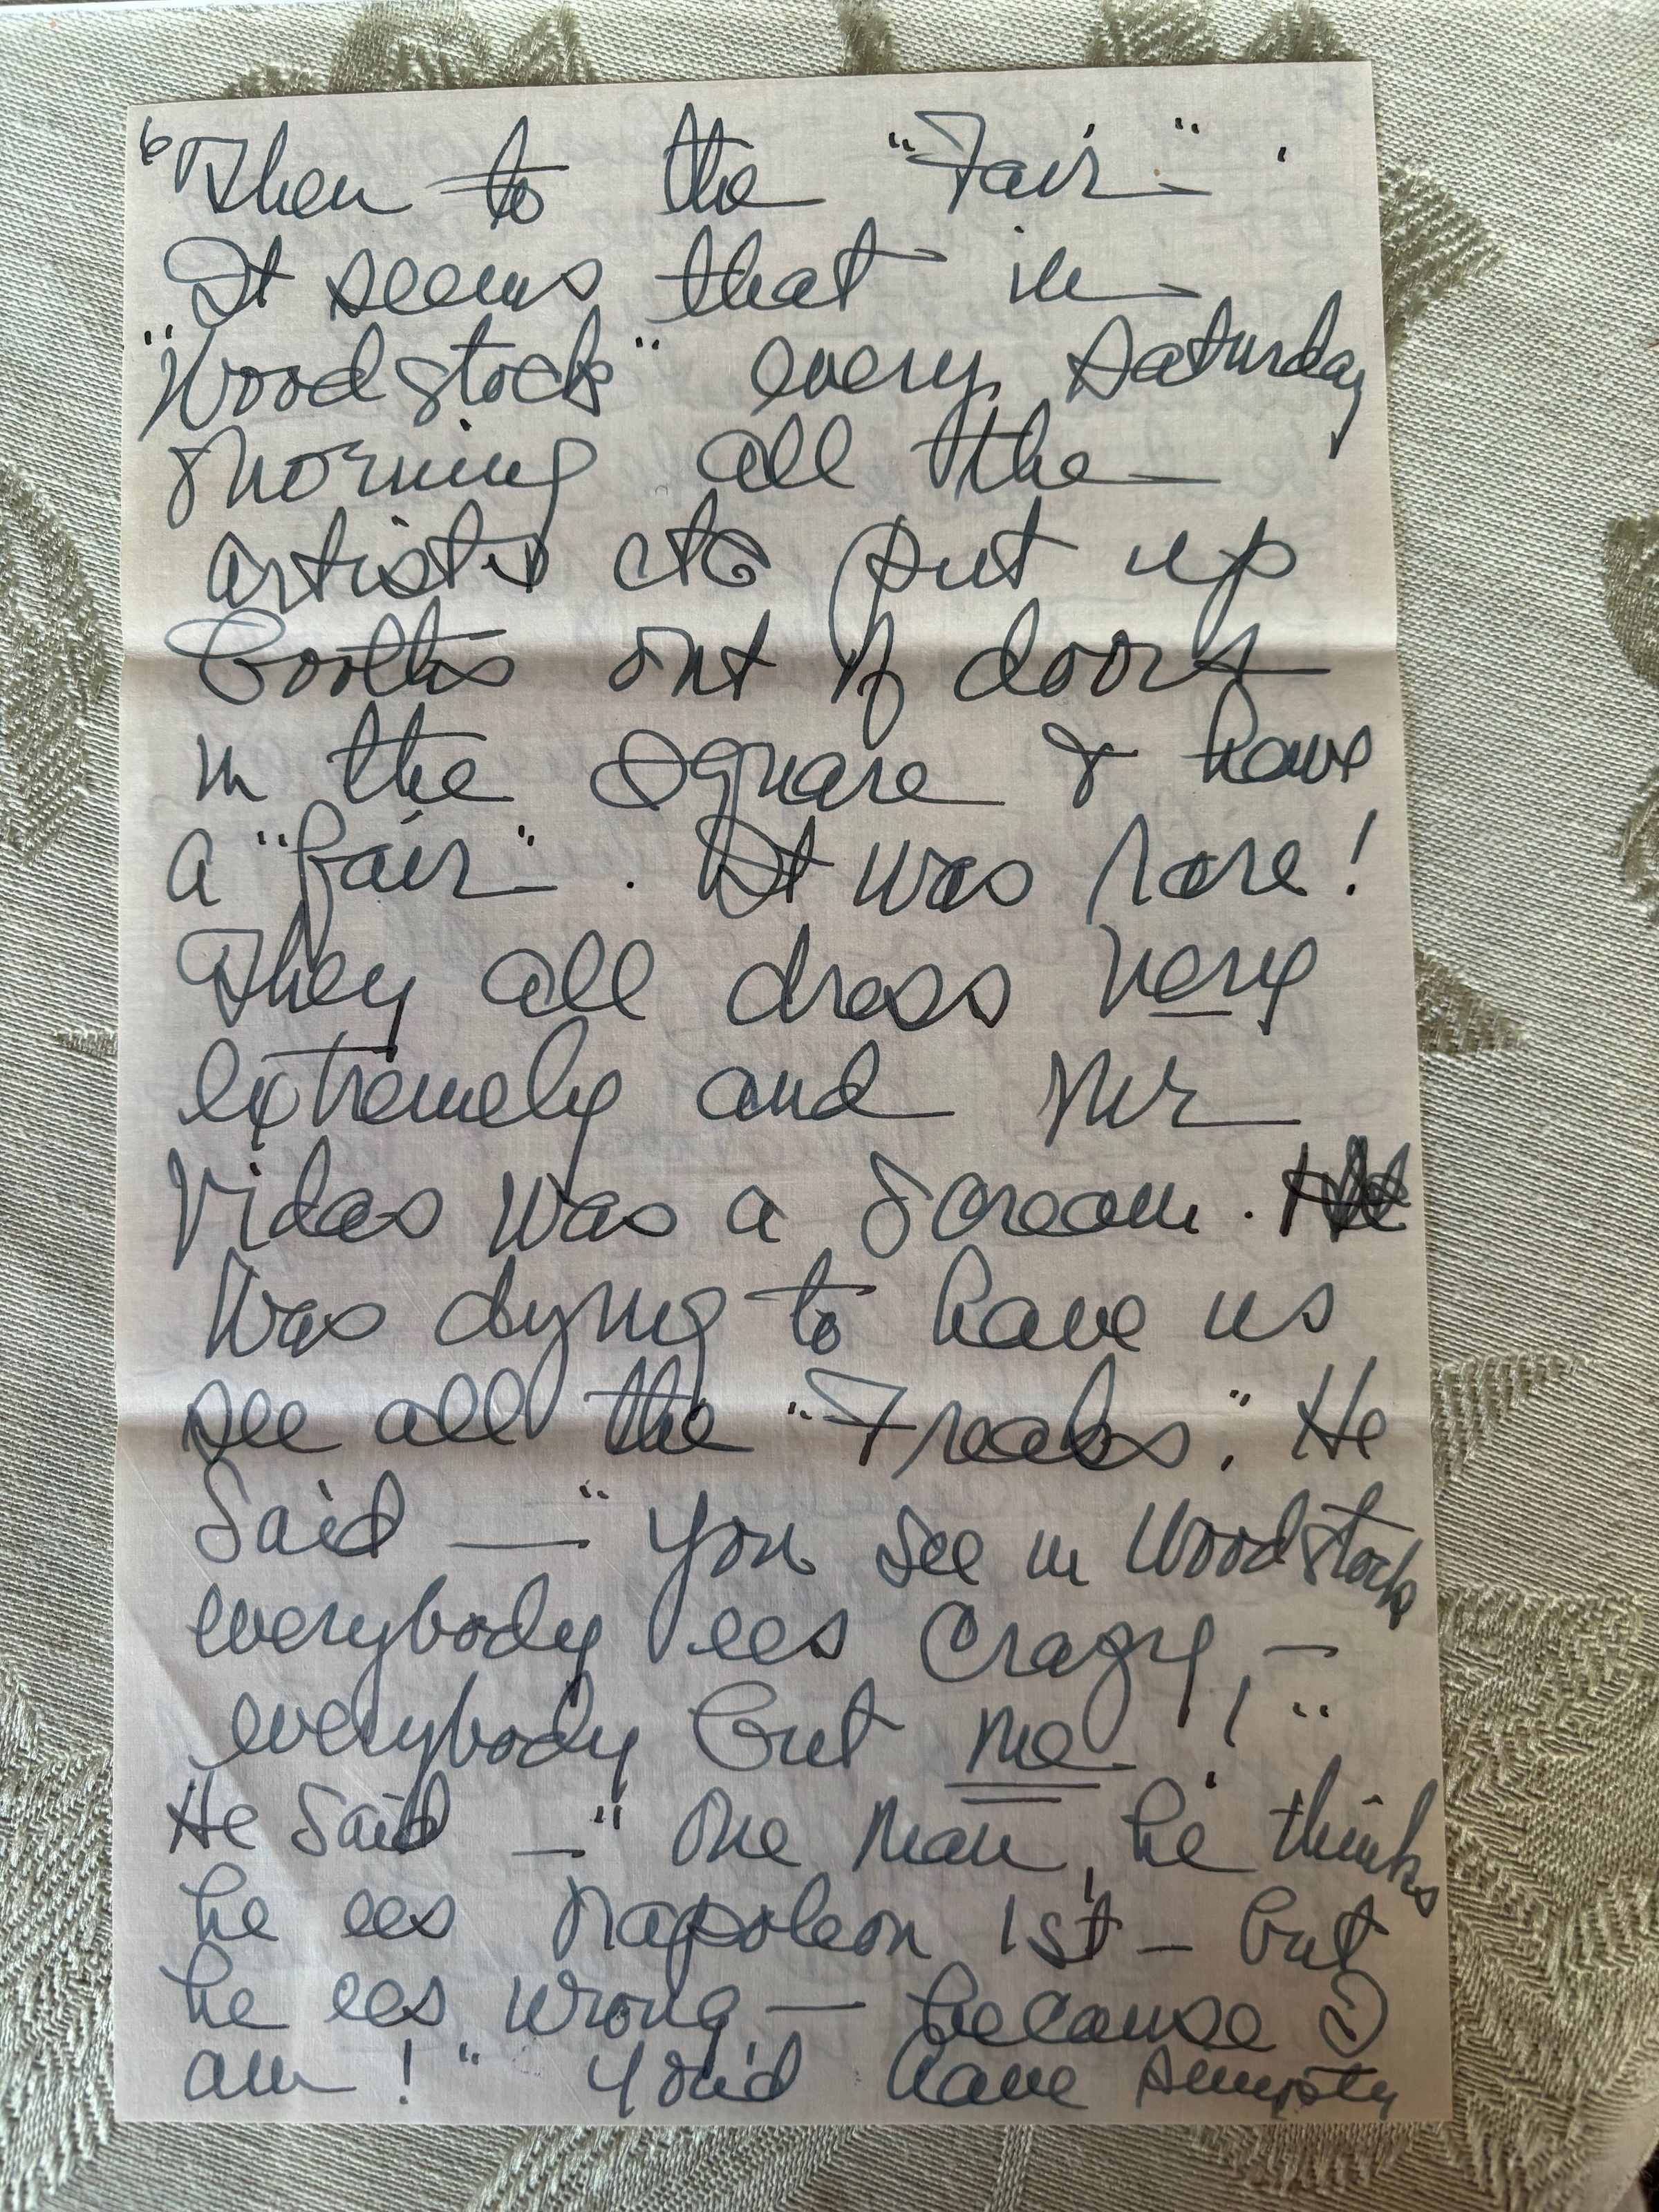 6 Then to the "Fair".
It seems that in
"Woodstock" every Saturday
morning all the
artists etc put up
booths out of doors
in the square & have
a "fair". It was rare!
They all dress very
extremely and Mr
Vidas was a scream. He
was dying to have us
see all the "Freaks". He
said — "You see in Woodstock
everybody ees crazy, —
everybody but me!"
He said — "One man, he thinks
he ees Napoleon 1st — but
he ees wrong — because I
am!" You'd have simply